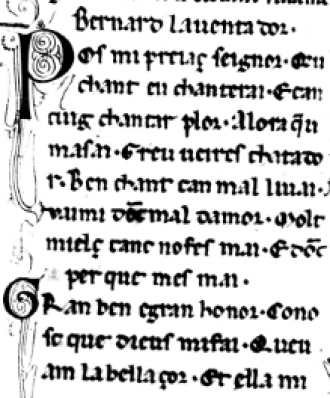 Bernard laventador.
Pos mi preiaç seignor. Qeu
chant eu chanterai. E can
cuig chantar plor. Alora qͥ u
masai. Greu veires chātado
r. Ben chant can mal li vai.
vami dōc mal damor. Molt
mielç canc nofes mai. E dōc
per que mes mai.
GRan ben egran honor. Cono
sc que dieus mifai. Queu
am la bellaçor. Et ella mi